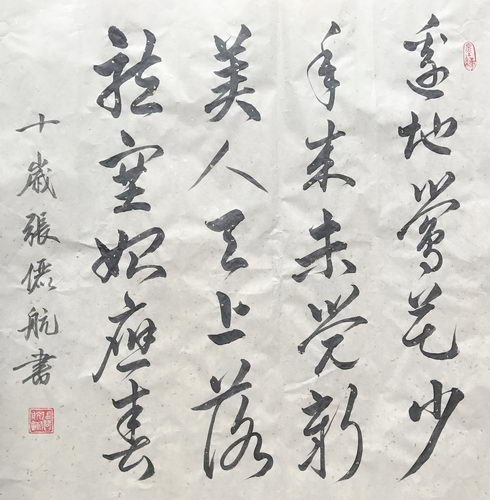 邊地鶯花少
年来未覺新
美人天上落
龍塞始應春
十歲張航書